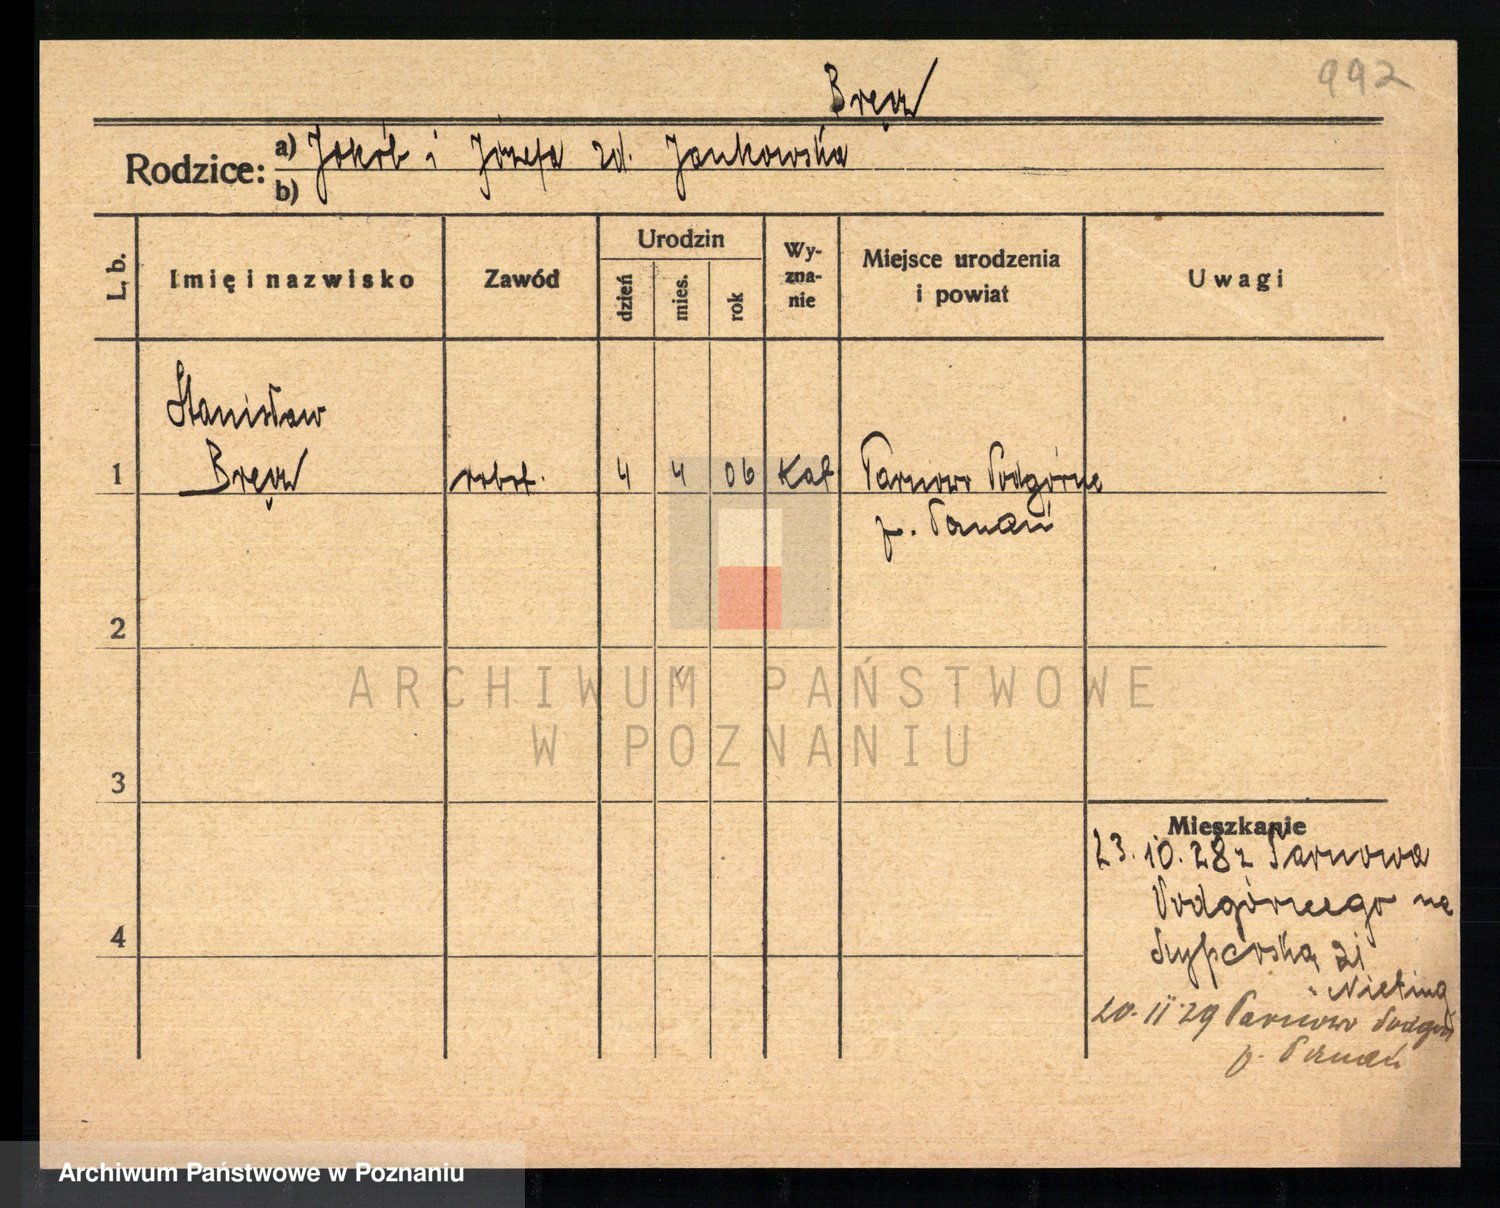 992
Bręcz
Rodzice: a) Jakób i Józefa zd. Jankowska
b)
L. b.
Imię i nazwisko
Zawód
Urodzin
dzień
mies.
rok
Wy-
zna-
nie
Miejsce urodzenia
i powiat
Uwagi
Stanisław
1 Bręcz robot. 4 4 06 Kat Tarnowo Podgórne
p. Poznań
2
ARCHIWUM PAŃSTWOWE
W POZNANIU
3
Mieszkanie
23.10.28 z Tarnowa
Podgórnego na
21
4
20.II.29 Tarnowo Podgór
p. Poznań
Archiwum Państwowe w Poznaniu